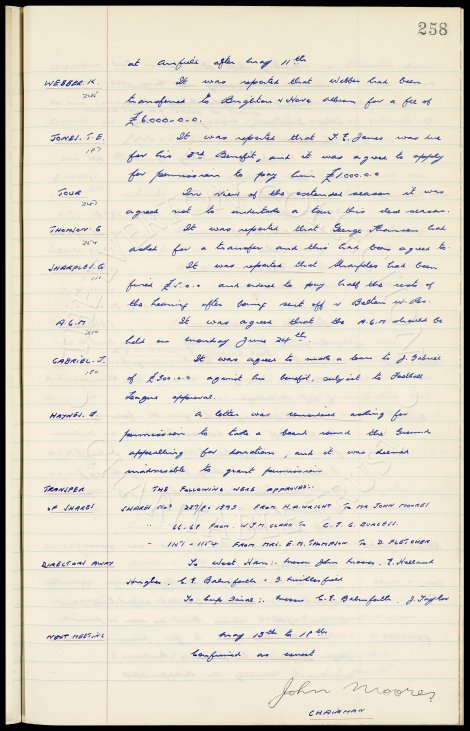 258
at Anfield after May 11th
WEBBER K. It was reported that Webber had been
248 transferred to Brighton & Hove Albion for a fee of
£6,000-0-0.
JONES. T.E. It was reported that T.E. Jones was due
197 for his 3rd Benefit, and it was agreed to apply
for permission to pay him £1,000.0.0
TOUR In view of the extended season it was
247 agreed not to undertake a tour this close season.
THOMSON G It was reported that George Thomson had
254 asked for a transfer and this had been agreed to.
SHARPLES. G. It was reported that Sharples had been
fined £5.0.0 and ordered to pay half the costs of
the hearing after being sent off v Bolton W. Res.
A.G.M It was agreed that the A.G.M should be
250 held on Monday June 24th.
GABRIEL. J. It was agreed to make a loan to J. Gabriel
180 of £300.0.0 against his benefit, subject to Football
League approval.
HAYNES. A letter was considered asking for
permission to take a board round the Ground
appealing for donations, and it was deemed
inadvisable to grant permission
TRANSFER THE FOLLOWING WERE APPROVED:-
OF SHARES SHARES Nos 1893 FROM. H.A. WRIGHT TO MR JOHN MOORES
" 66-68 FROM. W.J.M. CLARK TO C. J. G. BURGESS.
" 1151 - 1154 FROM MRS. E. M. THOMPSON TO D. FLETCHER
DIRECTORS AWAY To West Ham:- Messrs John Moores. F. Holland
Hughes. C. E. Balmforth.
To Cup Final:. Messrs C. E. Balmforth. J. Taylor
NEXT MEETING May 13th to 18th
Confirmed as correct
John Moores
CHAIRMAN